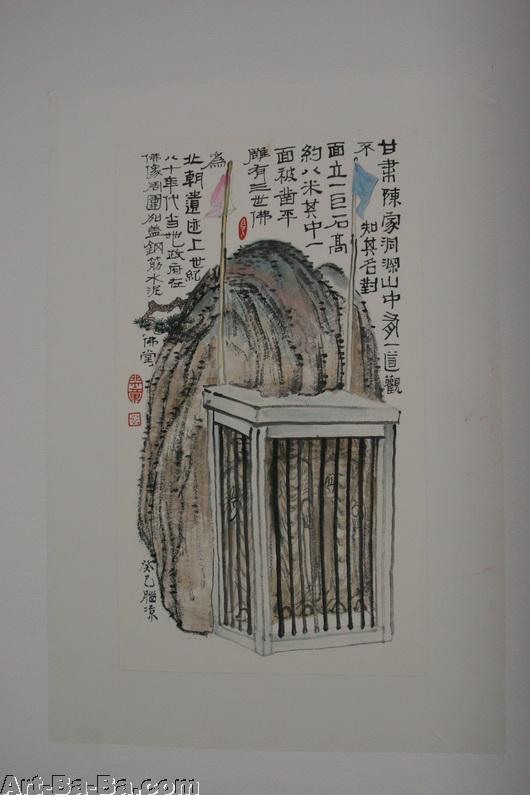 甘肃陳家洞深山中有一道觀
不知其名對
面立一巨石高
約八米其中一
面被凿平
雕有三世佛
為
北朝遺迹上世紀
八十年代当地政府在
佛像周圍加盖鋼筋水泥
佛堂
癸巳腦凉
Art-Ba-Ba.com